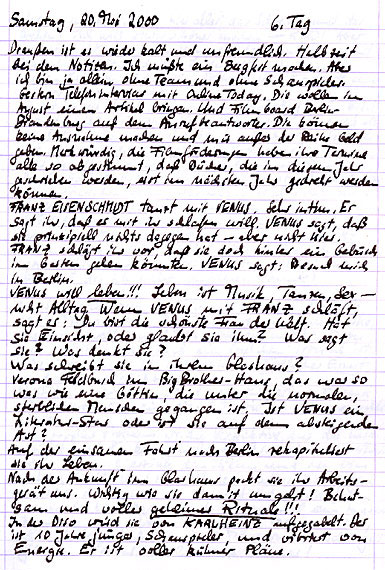 Samstag, 20. Mai 2000 6. Tag
Draußen ist es wieder kalt und unfreundlich. Halbzeit
bei den Notizen. Ich müßte ein Bergfest machen. Aber
ich bin ja allein ohne Team und ohne Schauspieler.
Gestern Telefoninterview mit Online Today. Die wollen im
August einen Artikel bringen. Und Filmboard Berlin-
Brandenburg auf dem Anrufbeantworter. Die können
keine Ausnahme machen und mir außer der Reihe Geld
geben. Merkwürdig, die Filmförderungen haben ihre Termine
alle so abgestimmt, daß Bücher, die in diesem Jahr
geschrieben werden, erst im nächsten Jahr gedreht werden
können.
FRANZ EISENSCHMIDT tanzt mit VENUS. Sehr intim. Er
sagt ihr, daß er mit ihr schlafen will. VENUS sagt, daß
sie prinzipiell nichts dagegen hat – aber nicht hier.
FRANZ schlägt ihr vor, daß sie doch hinter ein Gebüsch
im Garten gehen könnten. VENUS sagt: Besuch mich
in Berlin.
VENUS will leben!!! Leben ist Musik, Tanzen, Sex –
nicht Alltag. Wenn VENUS mit FRANZ schläft,
sagt er: Du bist die schönste Frau der Welt. Hat
sie Einsicht, oder glaubt sie ihm? Was sagt
sie? Was denkt sie?
Was schreibt sie in ihrem Glashaus?
Verona Feldbusch im Big Brother-Haus, das war so
was wie eine Göttin, die unter die normalen,
sterblichen Menschen gegangen ist. Ist VENUS ein
Literatur-Star oder ist sie auf dem absteigenden
Ast?
Auf der einsamen Fahrt nach Berlin rekapituliert
sie ihr Leben.
Nach der Ankunft im Glashaus packt sie ihr Arbeits-
gerät aus. Wichtig wie sie damit umgeht! Behut-
sam und voller geheimer Rituale!!!
In der Disco wird sie von KARLHEINZ aufgegabelt. Der
ist 10 Jahre jünger, Schauspieler, und vibriert vor
Energie. Er ist voller kühner Pläne.